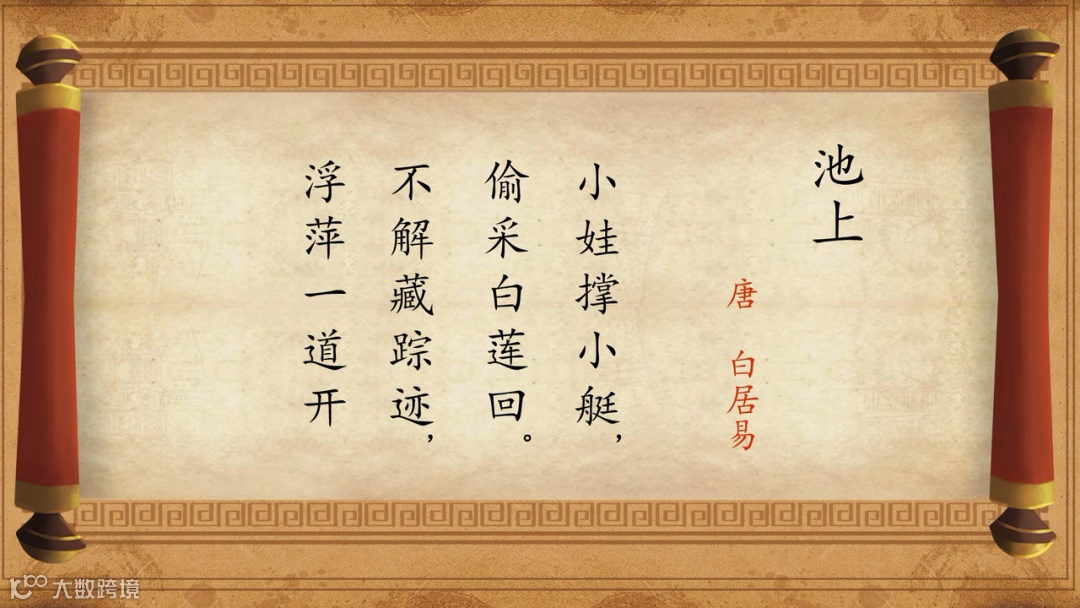 池上
唐 白居易
小娃撑小艇，
偷采白莲回。
不解藏踪迹，
浮萍一道开
大数跨境